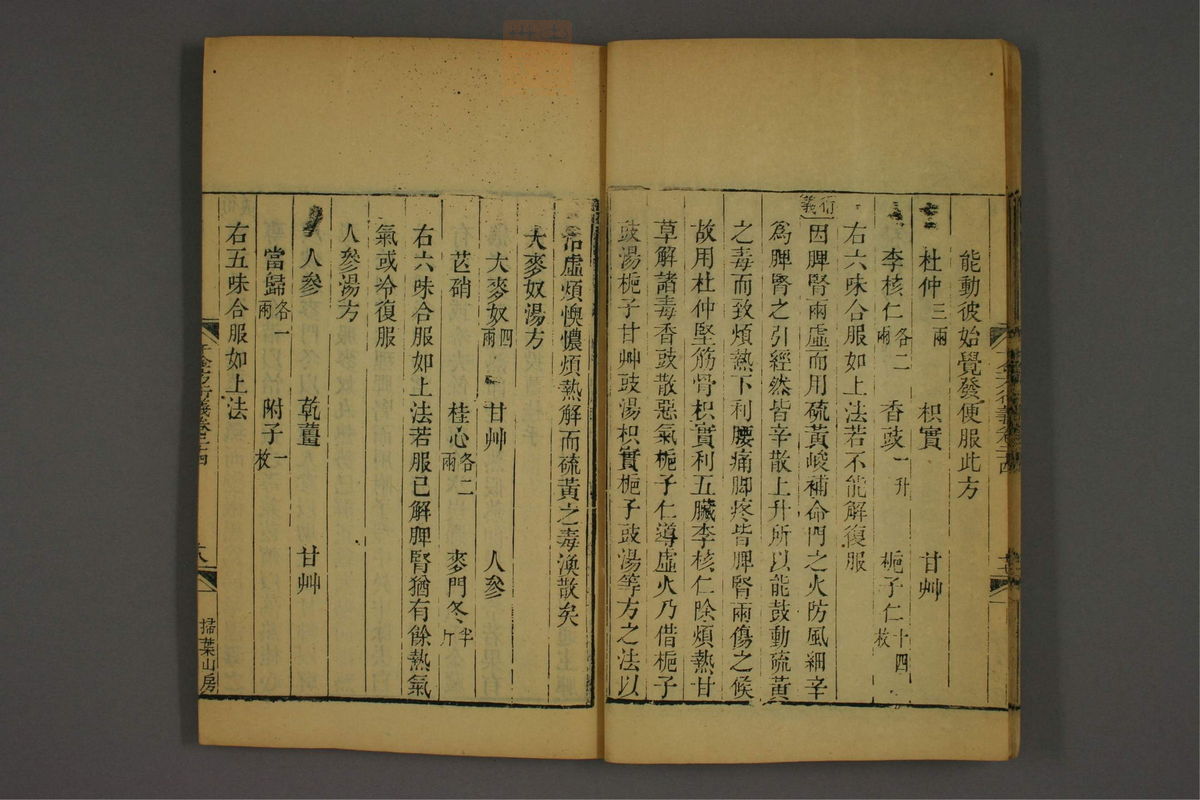 能動彼始覺發便服此方
杜仲三兩 枳實 甘艸
李核仁各二兩 香豉一升 梔子仁十四枚
右六味合服如上法若不能解復服
衍義因脾腎兩虛而用硫黃峻補命門之火防風細辛
爲脾腎之引經然皆辛散上升所以能鼓動硫黃
之毒而致煩熱下利腰痛脚疼皆脾腎兩傷之候
故用杜仲堅筋骨枳實利五臟李核仁除煩熱甘
草解諸毒香豉散惡氣梔子仁導虛火乃借梔子
豉湯梔子甘艸豉湯枳實梔子豉湯等方之法以
治虛煩懊憹煩熱解而硫黃之毒渙散矣
大麥奴湯方
大麥奴四兩 甘艸 人參
芒硝 桂心各二兩 麥門冬半斤
右六味合服如上法若服已解脾腎猶有餘熱氣
氣或冷復服
人參湯方
人參 乾薑 甘艸
當歸各一兩 附子一枚
右五味合服如上法
千金方衍義卷二十四
十八
掃葉山房